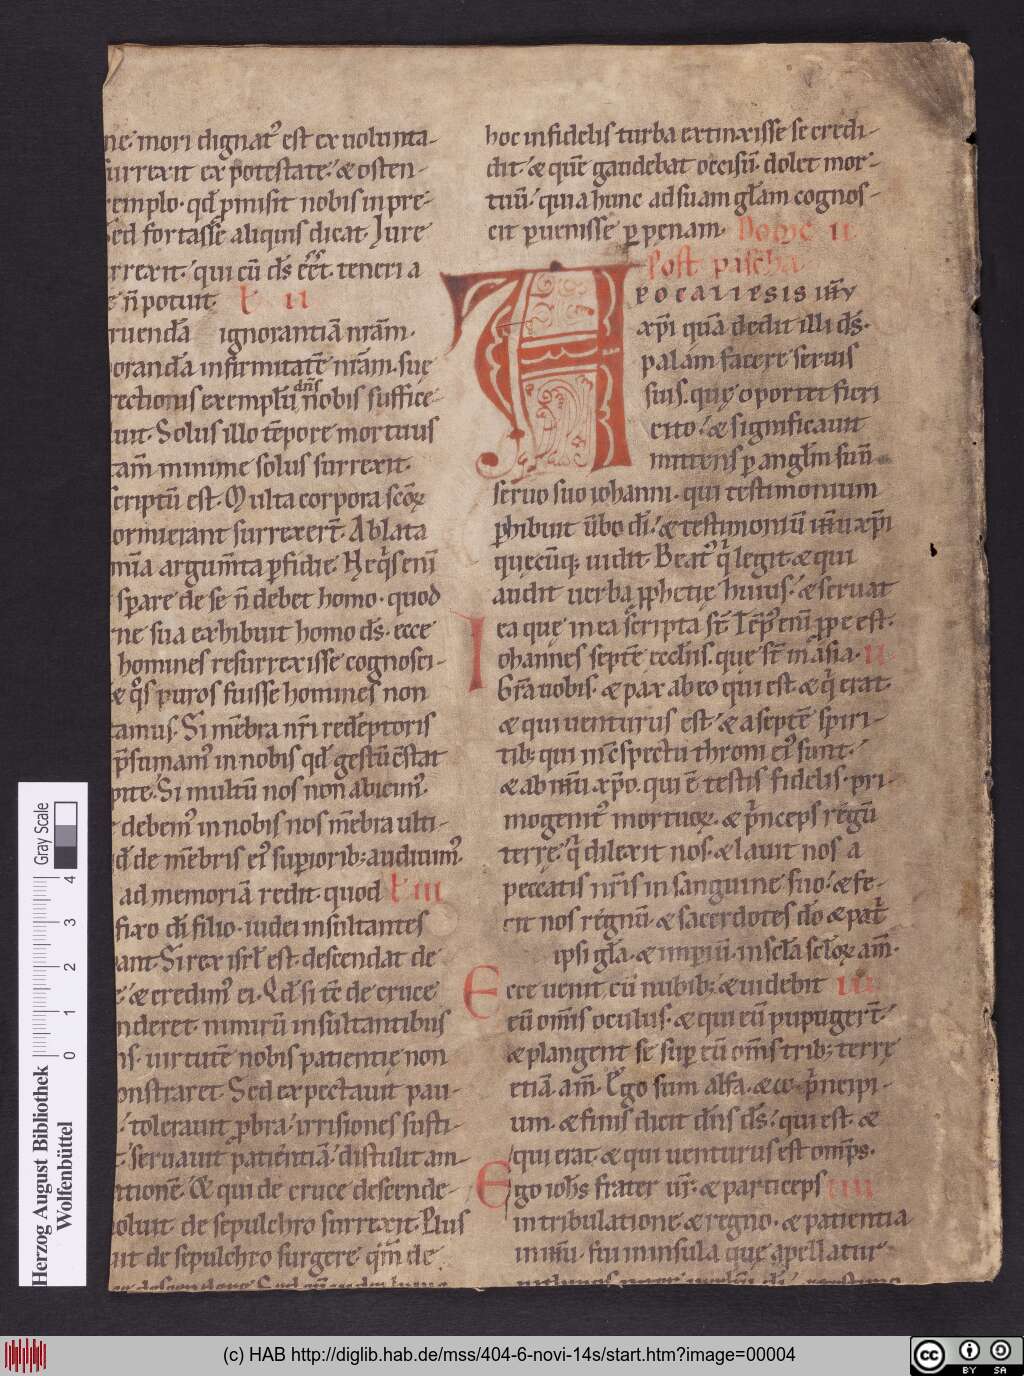 ne. mori dignat᷒ est ex uolunta-
surrexit ex potestate. & osten-
exemplo. qd̄ p̄misit nobis in pre-
Sed fortasse aliquis dicat. Iure
surrexit. qui cū d̄s eēt. teneri a
n̄ potuit. ł ii
struendā ignorantiā nrām.
orandā infirmitatē nrām. sue
rectionis exemplū dn̄s nobis suffice-
uit. Solus illo tēpore mortuus
tam̄ minime solus surrexit.
scriptū est. Multa corpora scōꝝ
dormierant surrexert̄. Ablata
om̄ia argum̄ta ꝑfidie. Ne q̇s enī
sperare de se n̄ debet homo. quod
carne sua exhibuit homo d̄s. ecce
homines resurrexisse cognosci-
& q̊s puros fuisse homines non
tamus. Si mēbra nr̄i redēptoris
p̄sumam᷒ in nobis qd̄ gestū cōstat
pite. Si multū nos non abicim᷒.
debem᷒ in nobis nos mēbra ulti-
qd̄ de mēbris ei᷒ superiorib; audiuim᷒.
ad memoriā redit. quod ł iii
fixo dī filio. iudei insultantes
bant. Si rex isrł est. descendat de
& credim᷒ ei. Qd̄ si tc̄ de cruce
nderet. nimirū insultantibus
ns. uirtutē nobis patientię non
onstraret. Sed expectauit pau-
tolerauit ꝓbra. irrisiones susti-
t. seruauit patientiā. distulit am-
rationē. & qui de cruce descende-
noluit. de sepulchro surrexit. Plus
fuit de sepulchro surgere. qm̄ de
hoc infidelis turba extinxisse se credi-
dit. & quē gaudebat occisū. dolet mor-
tuū. quia hunc ad suam głam cognos-
cit ꝑuenisse ꝑ penam. Domc̄ ii
Post pascha
APOCALIPSIS ih̄u
xp̄i quā dedit illi d̄s.
palam facere seruis
suis. quę oportet fieri
cito. & significauit
mittens ꝑ angłm suū
seruo suo iohanni. qui testimonium
ꝑhibuit ūbo dī. & testimoniū ih̄u xp̄i
quęcūq; uidit. Beat᷒ q̇ legit. & qui
audit uerba ꝓphetię huius. & seruat
ea que in ea scripta st̄. Tēp᷒ enī ꝓpe est.
Iohannes septē ecclīis. que st̄ in asia. ii
Gr̄a uobis. & pax ab eo qui est. & q̇ erat
& qui uenturus est. & a septē spiri-
tib; qui in cōspectu throni ei᷒ sunt.
& ab ih̄u xp̄o. qui ē testis fidelis. pri-
mogenit᷒ mortuoꝝ. & p̄nceps regū
terrę. q̇ dilexit nos. & lauit nos a
peccatis nr̄is in sanguine suo. & fe-
cit nos regnū. & sacerdotes dō & patri
ipsi głā. & impiū. in scła scłoꝝ am̄.
Ecce uenit cū nubib; & uidebit iii
eū om̄is oculus. & qui eū pupugert̄.
& plangent se sup eū om̄s trib; terrę
etiā. am̄. Ego sum alfa. & ω. p̄ncipi-
um. & finis dicit dn̄s d̄s. qui est. &
qui erat. & qui uenturus est omp̄s.
Ego ioh̄s frater ur̄. & particeps iiii
in tribulatione. & regno. & patientia
in ih̄u. fui in insula que apellatur